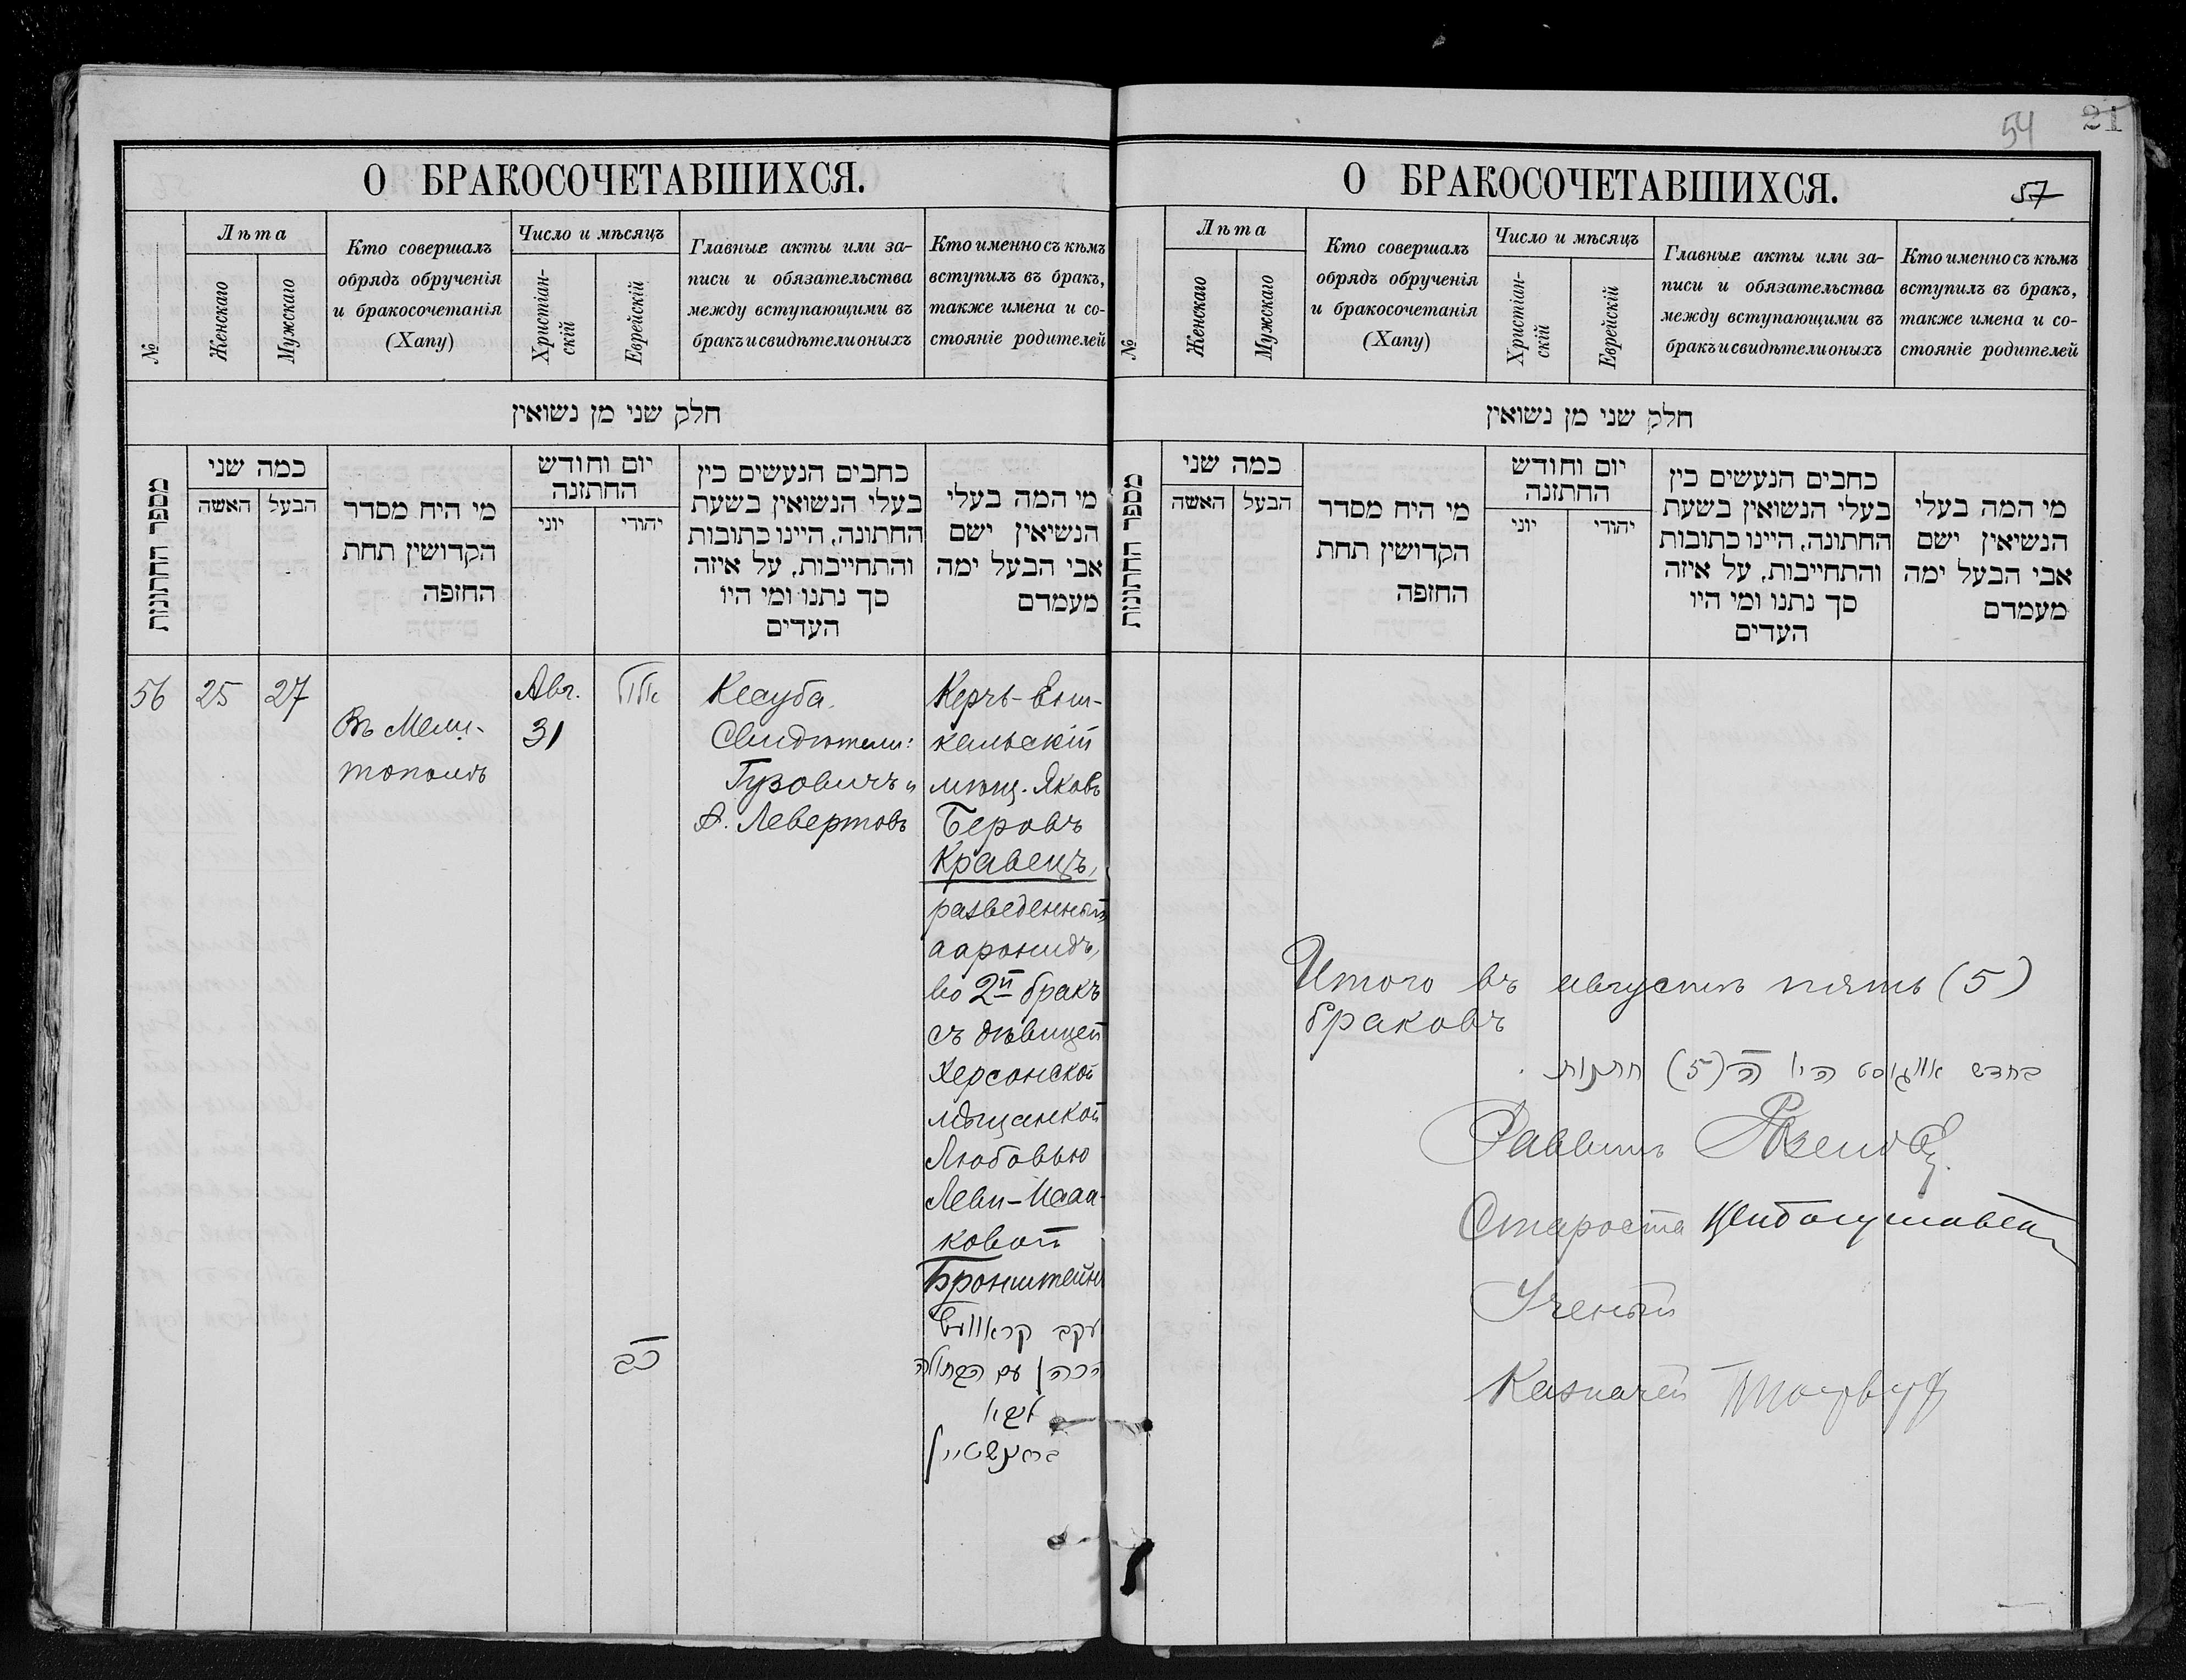 54 21
О БРАКОСОЧЕТАВШИХСЯ.
№
Лѣта
Женскаго
Мужскаго
Кто совершалъ
обрядъ обрученія
и бракосочетанія
(Хапу)
Число и мѣсяцъ
Христіан-
скій
Еврейскій
Главные акты или за-
писи и обязательства
между вступающими въ
бракъ и свидѣтели оныхъ
Кто именно съ кѣмъ
вступилъ въ бракъ,
также имена и со-
стояніе родителей
חלק שני מן נשואין
מספר החתונות
כמה שני
האשה
הבעל
מי היח מסדר
הקדושין תחת
החופה
יום וחודש
החתונה
יוני
יהודי
כחבים הנעשים בין
בעלי הנשואין בשעת
החתונה, היינו כתובות
והתחייבות, על איזה
סך נתנו ומי היו
העדים
מי המה בעלי
הנשיאין ישם
אבי הבעל ימה
מעמדם
56
25
27
Въ Мели-
тополѣ
Авг.
31
אלול
כב
Ксуба.
Свидѣтели:
Гузовичъ и
Левертовъ
Керчь-Ени-
кальскій
мѣщ. Яковъ
Беровъ
Кравецъ,
разведенный
ааронидъ,
во 2й бракъ
съ дѣвицей
Херсонской
мѣщанкой
Любовью
Леви-Исаа-
ковой
Бронштейнъ
יעקב קראוועץ
הכהן עם הבתולה
ליבא
בראנשטיין
О БРАКОСОЧЕТАВШИХСЯ.
57
№
Лѣта
Женскаго
Мужскаго
Кто совершалъ
обрядъ обрученія
и бракосочетанія
(Хапу)
Число и мѣсяцъ
Христіан-
скій
Еврейскій
Главные акты или за-
писи и обязательства
между вступающими въ
бракъ и свидѣтели оныхъ
Кто именно съ кѣмъ
вступилъ въ бракъ,
также имена и со-
стояніе родителей
חלק שני מן נשואין
מספר החתונות
כמה שני
האשה
הבעל
מי היח מסדר
הקדושין תחת
החופה
יום וחודש
החתונה
יוני
יהודי
כחבים הנעשים בין
בעלי הנשואין בשעת
החתונה, היינו כתובות
והתחייבות, על איזה
סך נתנו ומי היו
העדים
מי המה בעלי
הנשיאין ישם
אבי הבעל ימה
מעמדם
Итого въ августѣ пять (5)
браковъ
בחדש אווגוסט היו ה (5) חתנות
Раввинъ
Староста
Ученый
Казначей